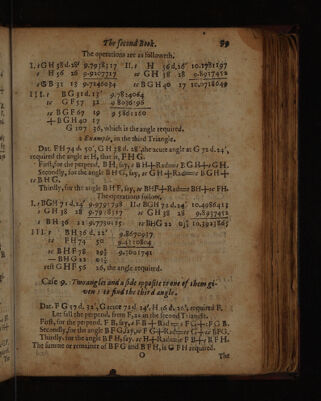 The second Book. 89
The operations are as followeth.
I. s GH 38 d. 28' 9.7938317 II. t H 56 d. 26' 10.1781197
s H 56 26 9.9207717 sc GH 38 28 9.8937452
s GB 31 13 9.7146034 tc BGH 40 17 10.0718649
III. s BG 31 d. 13' 9.7824064
sc GF 57 32
sc BGF 67 19 9.5861160
+ BGH 40 17
G 107 36, which is the angle required.
2 Example, in the third Triangle.
Dat. FH 74 d. 50', GH 38 d. 28', the acute angle at G 72 d. 24',
required the angle at H, that is, FHG.
First, for the perpend. BH, say,
Secondly, for the angle BHG, say, sc GH + Rad = tc BGH +
tc BHG.
Thirdly, for the angle BHF, say, tc BHF + Rad = BH + tc FH.
The operations follow.
I. s BGH 72 d. 24' 9.9791798 II. t BGH 72 d. 24' 10.4986413
s GH 38 28 9.7938317 sc GH 38 28 9.8937452
s BH 36 22 9.7730115 tc BHG 22 03½ 10.3923865
III. t BH 36 d. 22' 9.8670937
tc FH 74 50 9.4330804
sc BHF 78 29½ 9.3001741
— BHG 22 03½
rest GHF 56 26, the angle required.
Case 9. Two angles and a side opposite to one of them gi-
ven: to find the third angle.
Dat. FG 57 d. 32', G acute 72 d. 24', H 56 d. 26', required F.
Let fall the perpend. from F, as in the second Triangle.
First, for the perpend. FB, say, s FB + Rad = s FG + s FGB.
Secondly, for the angle BFG, say, sc FG + Rad = tc G + tc BFG.
Thirdly, for the angle BFH, say,
The summe or remainer of BFG and BFH, is GFH required.
O The